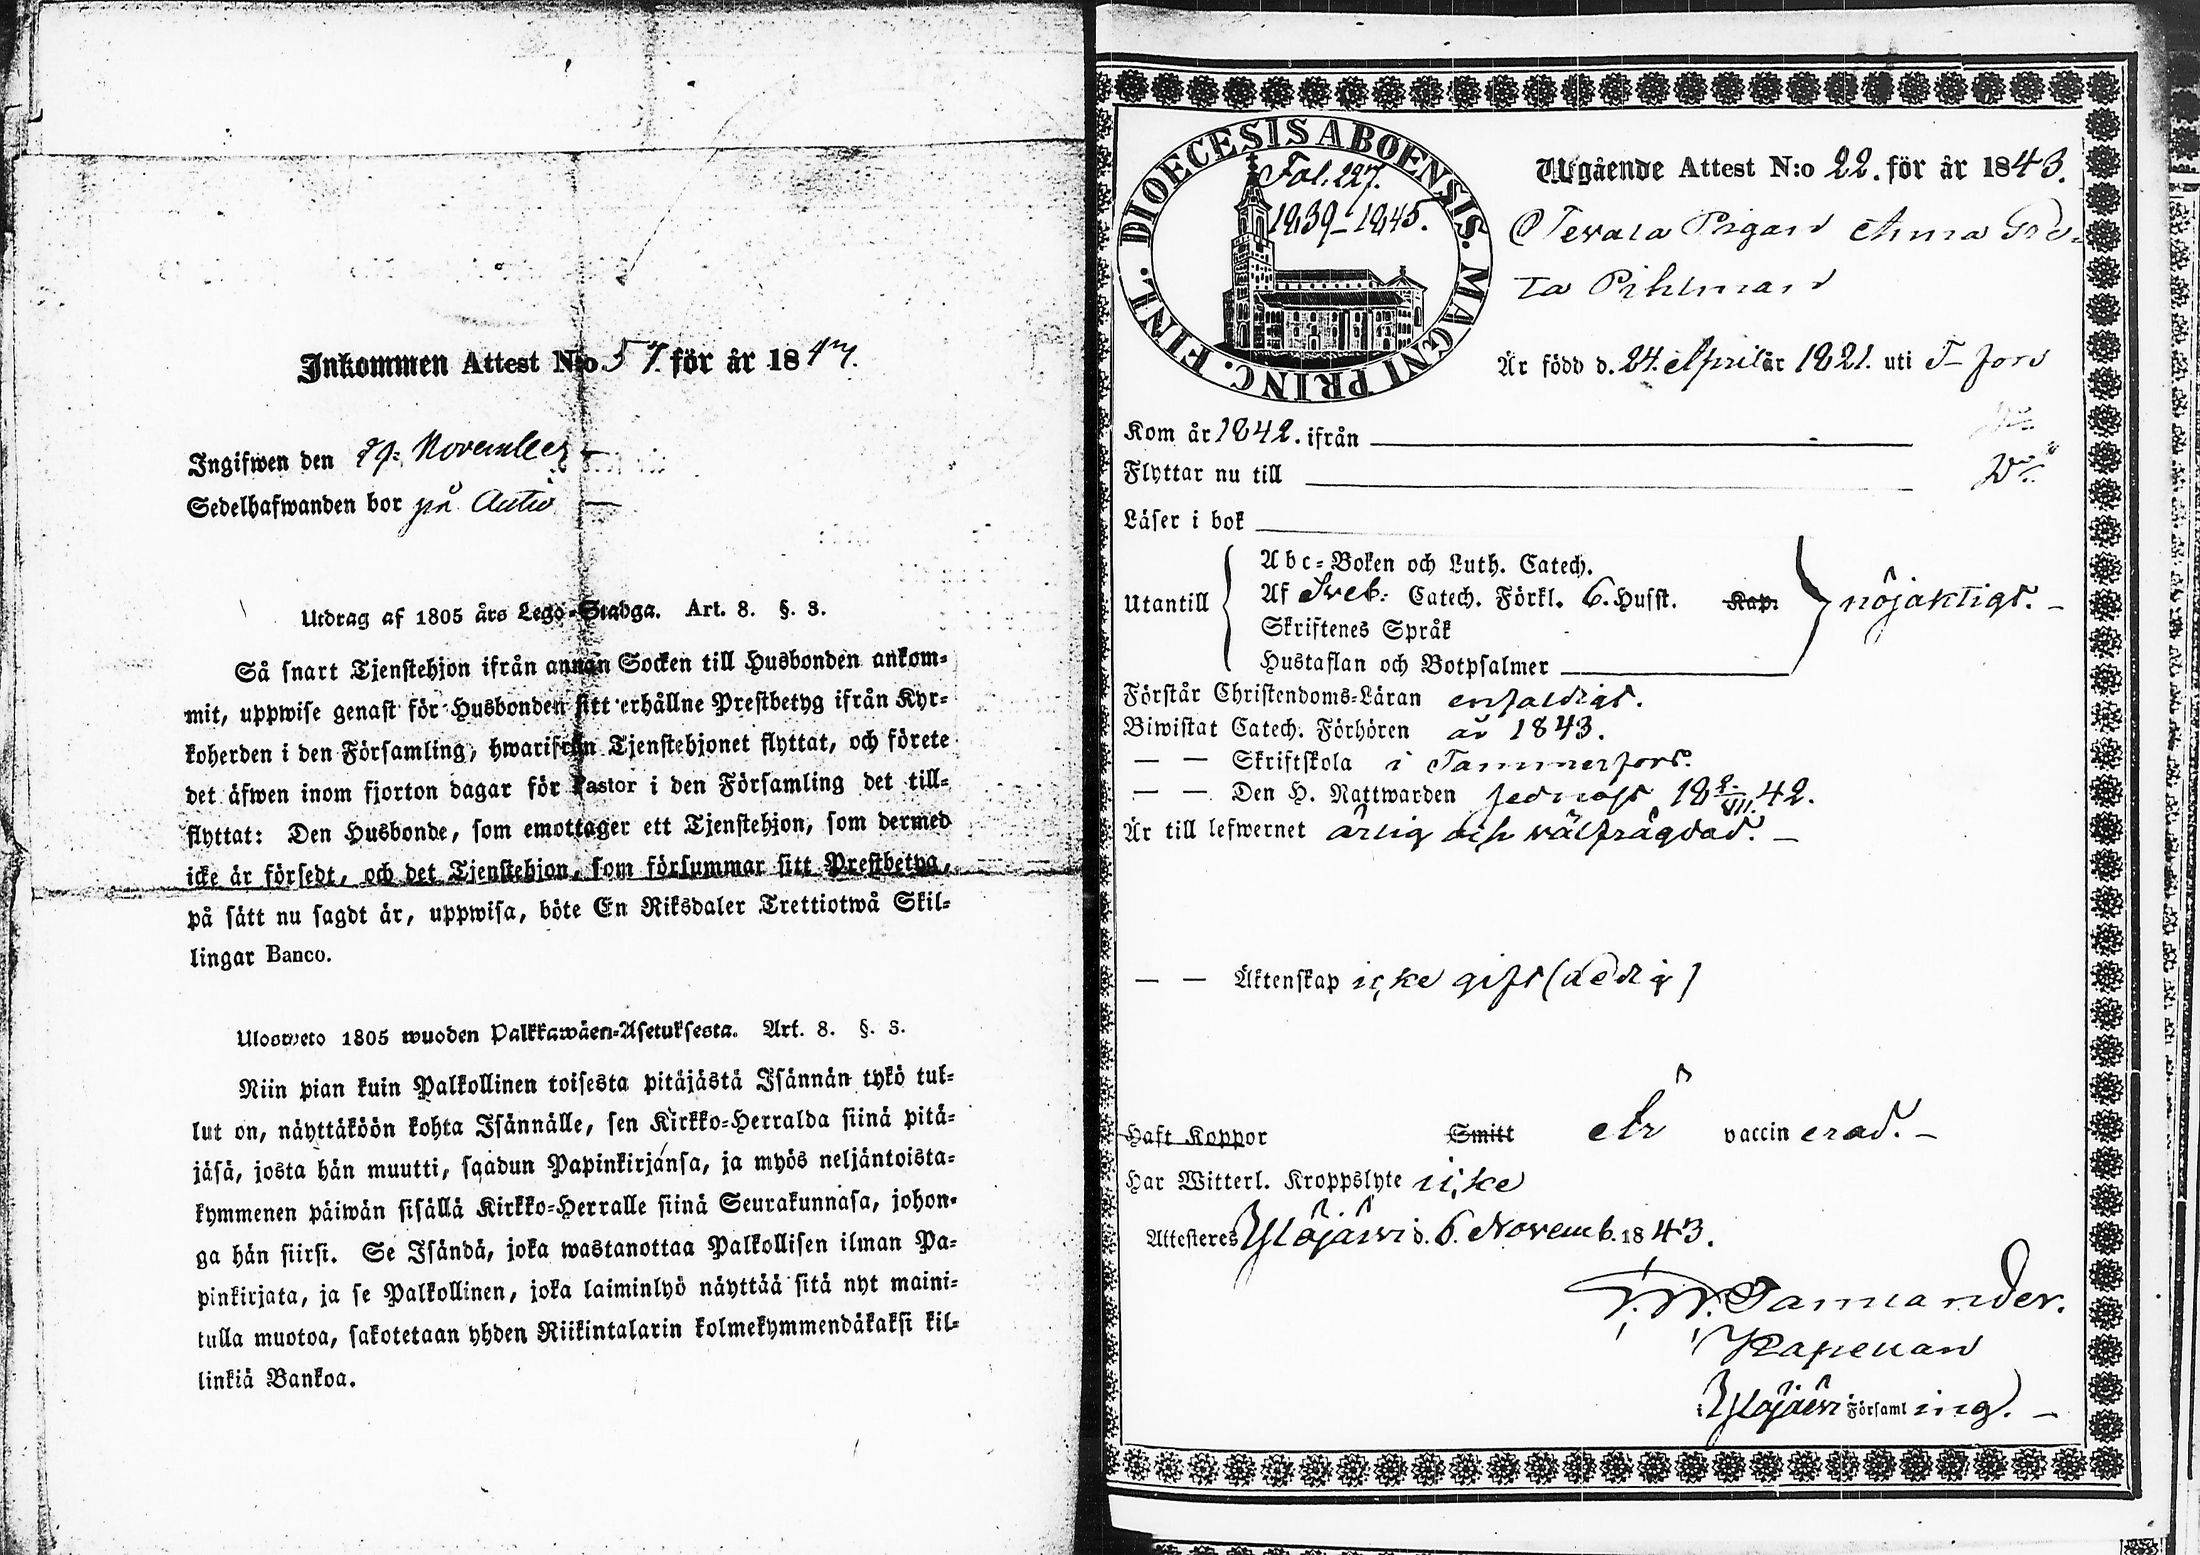 Inkommen Attest N:o 57. för år 184
Ingifwen den 29. November
Sedelhafwanden bor på Autio
Utdrag af 1805 års Lego-Stadga. Art. 8. §. 3.
Så snart Tjenstehjon ifrån annan Socken till Husbonden ankom-
mit, uppwise genast för Husbonden sitt erhållne Prestbetyg ifrån Kyr-
koherden i den Församling, hwarifrån Tjenstehjonet flyttat, och förete
det äfwen inom fjorton dagar för Pastor i den Församling det till-
flyttat: Den Husbonde, som emottager ett Tjenstehjon, som dermed
icke är försedt, och det Tjenstehjon, som försummar sitt Prestbetyg,
på sätt nu sagdt är, uppwisa, böte En Riksdaler Trettiotwå Skil-
lingar Banco.
Ulosweto 1805 wuoden Palkkawäen-Asetuksesta. Art. 8. §. 3.
Niin pian kuin Palkollinen toisesta pitäjästä Isännän tykö tul-
lut on, näyttäköön kohta Isännälle, sen Kirkko-Herralda siinä pitä-
jäsä, josta hän muutti, saadun Papinkirjansa, ja myös neljäntoista-
kymmenen päiwän sisällä Kirkko-Herralle siinä Seurakunnasa, johon-
ga hän siirsi. Se Isändä, joka wastanottaa Palkollisen ilman Pa-
pinkirjata, ja se Palkollinen, joka laiminlyö näyttää sitä nyt maini-
tulla muotoa, sakotetaan yhden Riikintalarin kolmekymmendäkaksi kil-
linkiä Bankoa.
DIOECESIS ABOENSIS. MAGNI PRINC. FINL.
Fol. 227.
1839-1845.
Utgående Attest N:o 22. för år 1843.
Pigan Anna Gre-
ta Pihlman
Är född d. 24. April år 1821. uti T-fors
Kom år 1842. ifrån
Flyttar nu till
Läser i bok
Utantill
Abc-Boken och Luth. Catech.
Af Sveb. Catech. Förkl. 6. Husst. Kap. nöjaktigt.
Skriftenes Språk
Hustaflan och Botpsalmer
Förstår Christendoms-Läran enfaldigt.
Biwistat Catech. Förhören år 1843.
— — Skriftskola i Tammerfors.
— — Den H. Nattwarden sednast 18 2/VII 42.
Är till lefwernet ärlig och välfrägdad.
— — Äktenskap icke gift (ledig)
Haft Koppor Smitt Är vaccinerad.
Har Witterl. Kroppslyte icke
Attesteres Ylöjärvi d. 6. Novemb. 1843.
Tamlander.
Kapellan
i Ylöjärvi Församling.